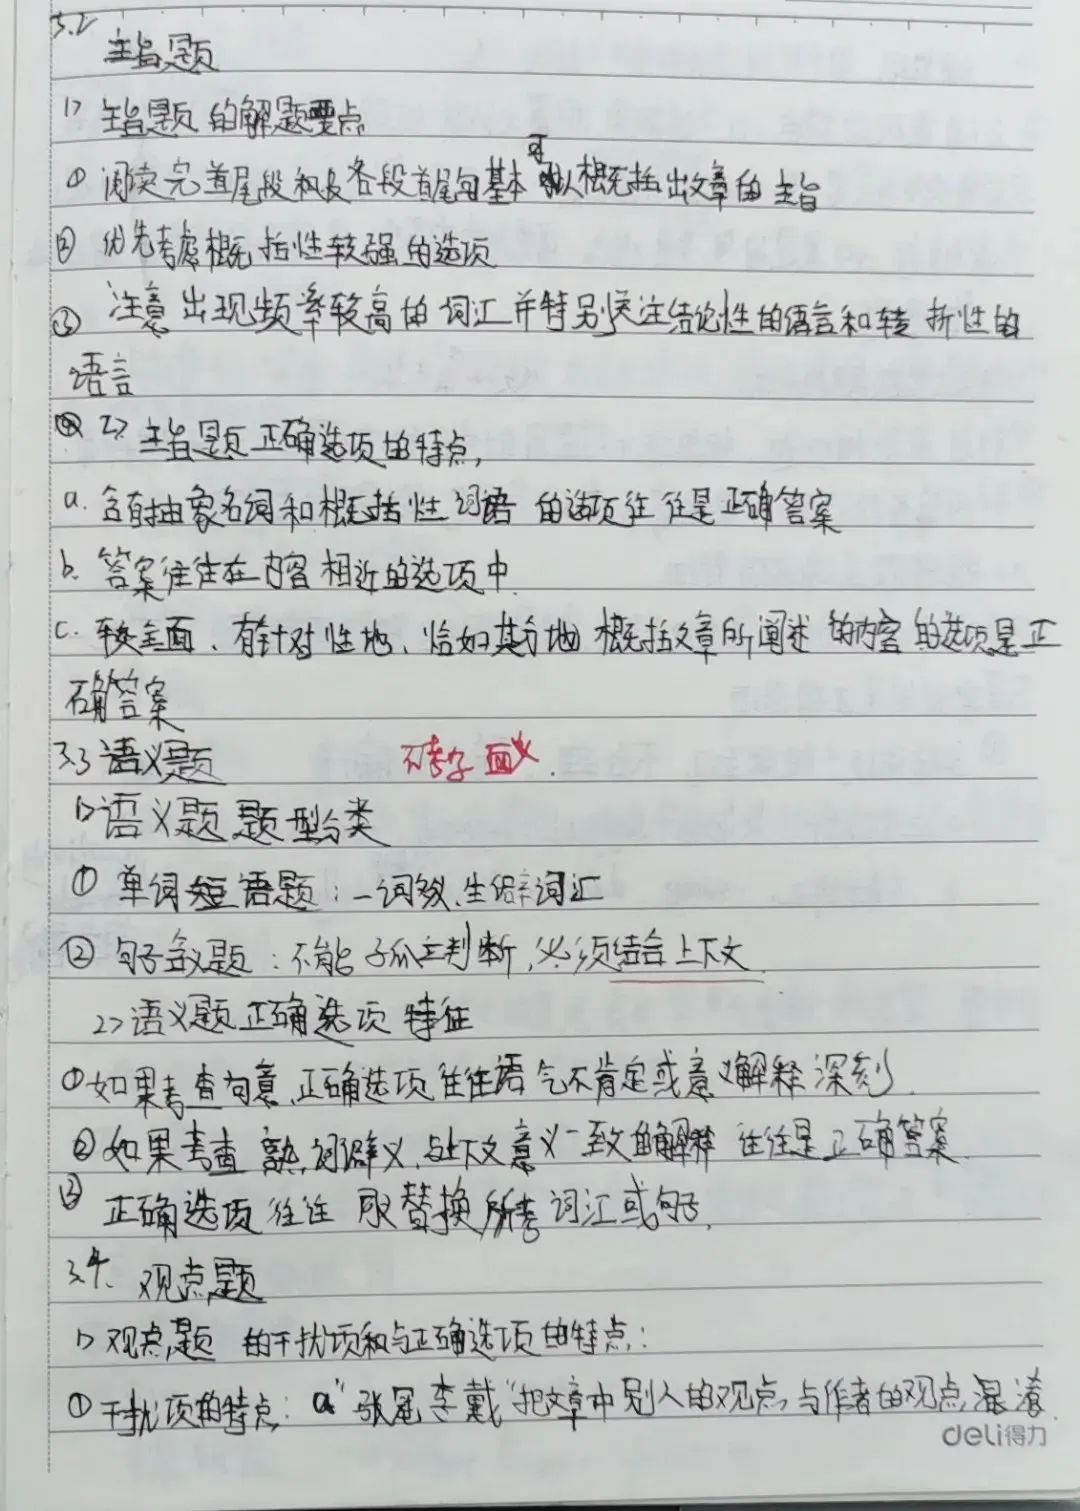 3.2
主旨题
1> 主旨题的解题要点
① 阅读完首尾段和及各段首尾句基本可以概括出文章的主旨
② 优先考虑概括性较强的选项
③ 注意出现频率较高的词汇并特别关注结论性的语言和转折性的
语言
2> 主旨题正确选项的特点,
a. 含有抽象名词和概括性词语的选项往往是正确答案
b. 答案往往在内容相近的选项中.
c. 较全面、有针对性地、恰如其分地概括文章所阐述的内容的选项是正
确答案
3.3 语义题 不考字面义.
1> 语义题题型分类
① 单词短语题:一词多义、生僻词汇
② 句子含义题:不能孤立判断,必须结合上下文.
2> 语义题正确选项特征
① 如果考查句意,正确选项往往语气不肯定或意义解释深刻.
② 如果考查熟词僻义,与上下文意义一致的解释往往是正确答案.
③ 正确选项往往可替换所考词汇或句子.
3.4. 观点题
1> 观点题的干扰项和与正确选项的特点:
① 干扰项的特点: a“张冠李戴”把文章中别人的观点与作者的观点混淆.
deli得力